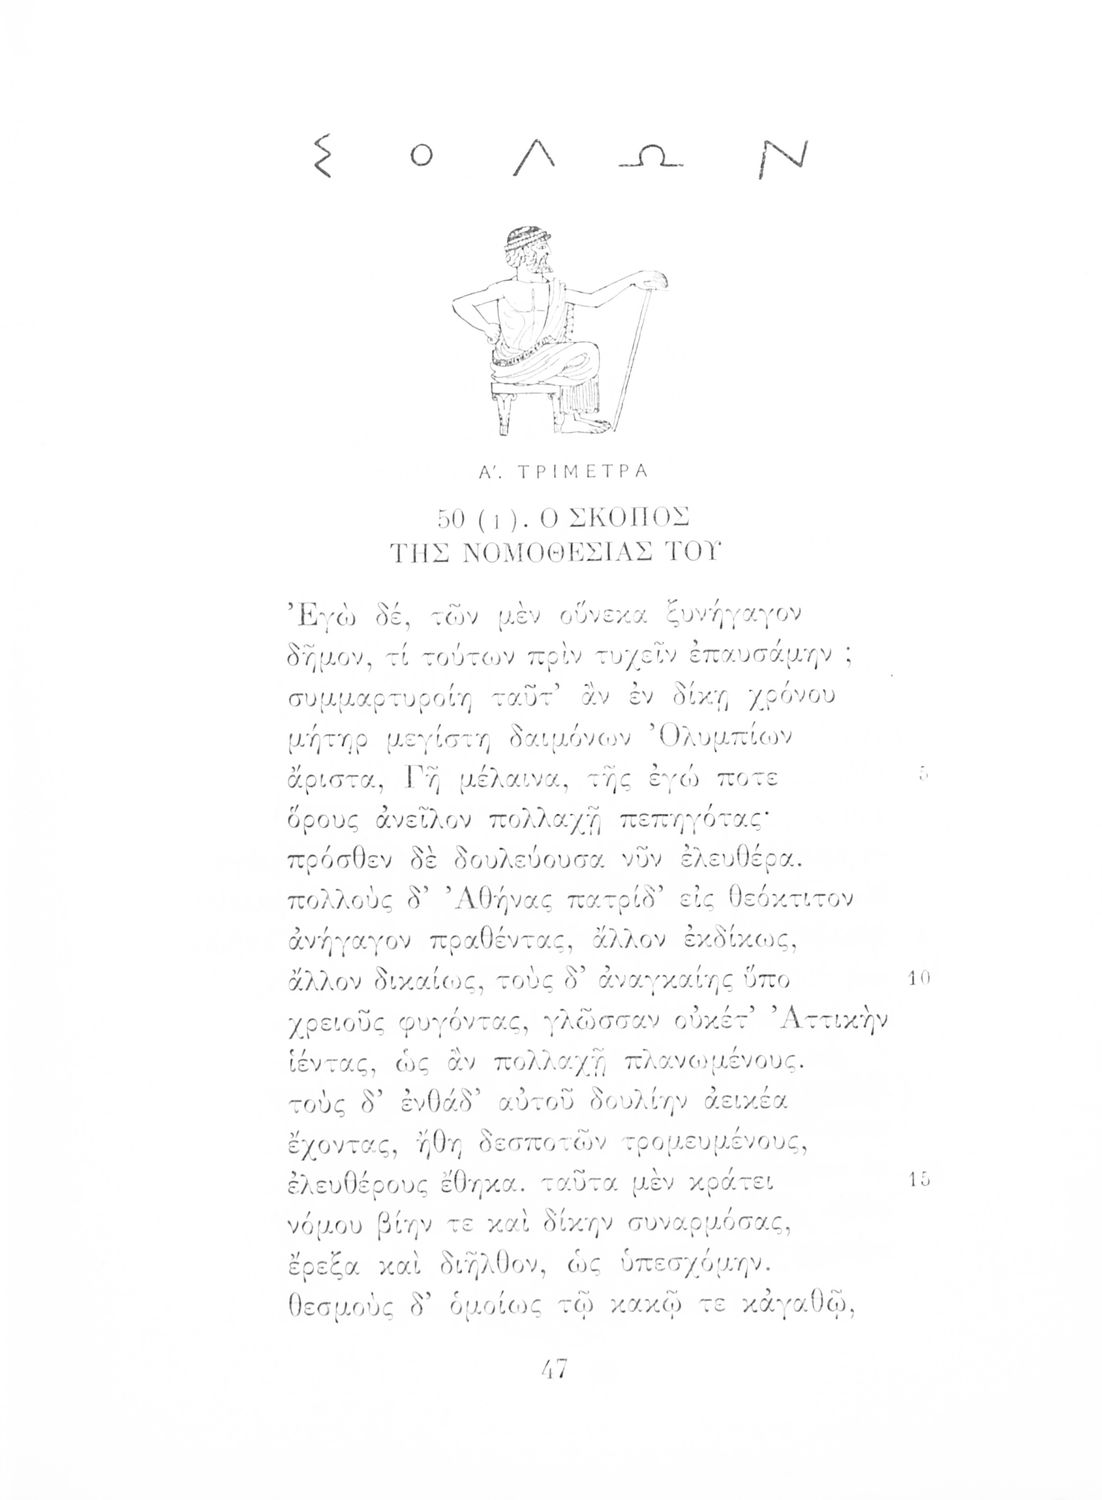 ΣΟΛΩΝ
Α'. ΤΡΙΜΕΤΡΑ
50 (1). Ο ΣΚΟΠΟΣ
ΤΗΣ ΝΟΜΟΘΕΣΙΑΣ ΤΟΥ
Ἐγὼ δέ, τῶν μὲν οὕνεκα ξυνήγαγον
δῆμον, τί τούτων πρὶν τυχεῖν ἐπαυσάμην ;
συμμαρτυροίη ταῦτ' ἂν ἐν δίκῃ χρόνου
μήτηρ μεγίστη δαιμόνων Ὀλυμπίων
ἄριστα, Γῆ μέλαινα, τῆς ἐγώ ποτε 5
ὅρους ἀνεῖλον πολλαχῇ πεπηγότας·
πρόσθεν δὲ δουλεύουσα νῦν ἐλευθέρα.
πολλοὺς δ' Ἀθήνας πατρίδ' εἰς θεόκτιτον
ἀνήγαγον πραθέντας, ἄλλον ἐκδίκως,
ἄλλον δικαίως, τοὺς δ' ἀναγκαίης ὕπο 10
χρειοῦς φυγόντας, γλῶσσαν οὐκέτ' Ἀττικὴν
ἱέντας, ὡς ἂν πολλαχῇ πλανωμένους.
τοὺς δ' ἐνθάδ' αὐτοῦ δουλίην ἀεικέα
ἔχοντας, ἤθη δεσποτῶν τρομευμένους,
ἐλευθέρους ἔθηκα. ταῦτα μὲν κράτει 15
νόμου βίην τε καὶ δίκην συναρμόσας,
ἔρεξα καὶ διῆλθον, ὡς ὑπεσχόμην.
θεσμοὺς δ' ὁμοίως τῷ κακῷ τε κἀγαθῷ,
47